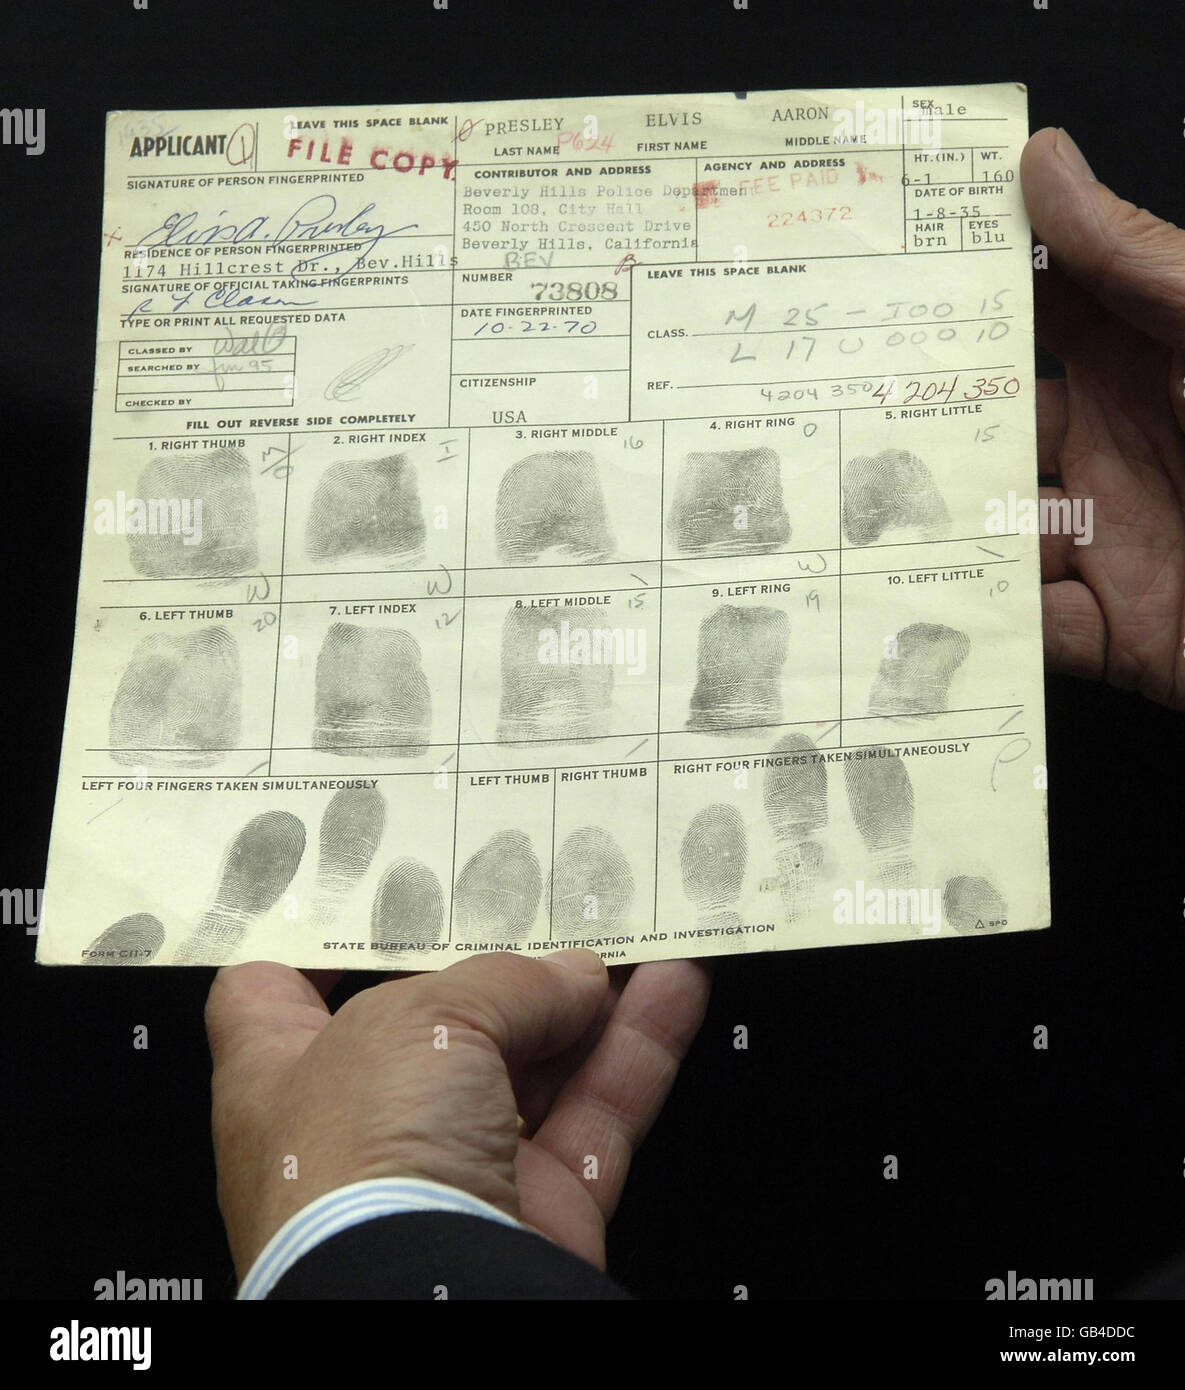 1935
LEAVE THIS SPACE BLANK
APPLICANT 1
FILE COPY
PRESLEY ELVIS AARON
P624
LAST NAME FIRST NAME MIDDLE NAME
SEX
male
SIGNATURE OF PERSON FINGERPRINTED
CONTRIBUTOR AND ADDRESS
AGENCY AND ADDRESS
HT. (IN.) WT.
6-1 160
Elvis A. Presley
Beverly Hills Police Department
Room 108, City Hall
450 North Crescent Drive
Beverly Hills, California
FEE PAID
224372
DATE OF BIRTH
1-8-35
HAIR EYES
brn blu
RESIDENCE OF PERSON FINGERPRINTED
1174 Hillcrest Dr., Bev.Hills
BEV
SIGNATURE OF OFFICIAL TAKING FINGERPRINTS
NUMBER
73808
LEAVE THIS SPACE BLANK
TYPE OR PRINT ALL REQUESTED DATA
DATE FINGERPRINTED
10-22-70
M 25 - IOO 15
CLASS.
L 17 U OOO 10
CLASSED BY
SEARCHED BY
CHECKED BY
CITIZENSHIP
USA
REF.
4204 350 4 204 350
FILL OUT REVERSE SIDE COMPLETELY
1. RIGHT THUMB 2. RIGHT INDEX 3. RIGHT MIDDLE 4. RIGHT RING 5. RIGHT LITTLE
M I 16 O 15
O
W W \ W \
6. LEFT THUMB 7. LEFT INDEX 8. LEFT MIDDLE 9. LEFT RING 10. LEFT LITTLE
20 12 15 19 10
/ / / / /
LEFT FOUR FINGERS TAKEN SIMULTANEOUSLY LEFT THUMB RIGHT THUMB RIGHT FOUR FINGERS TAKEN SIMULTANEOUSLY
P
FORM CII-7
STATE BUREAU OF CRIMINAL IDENTIFICATION AND INVESTIGATION
SPO
RNIA
alamy
a
alamy
Image ID: GB4DDC
www.alamy.com